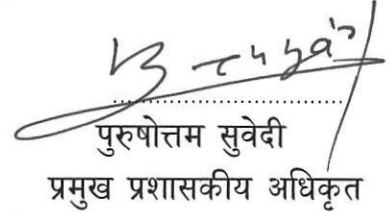 पुरुषोत्तम सुवेदी
प्रमुख प्रशासकीय अधिकृत